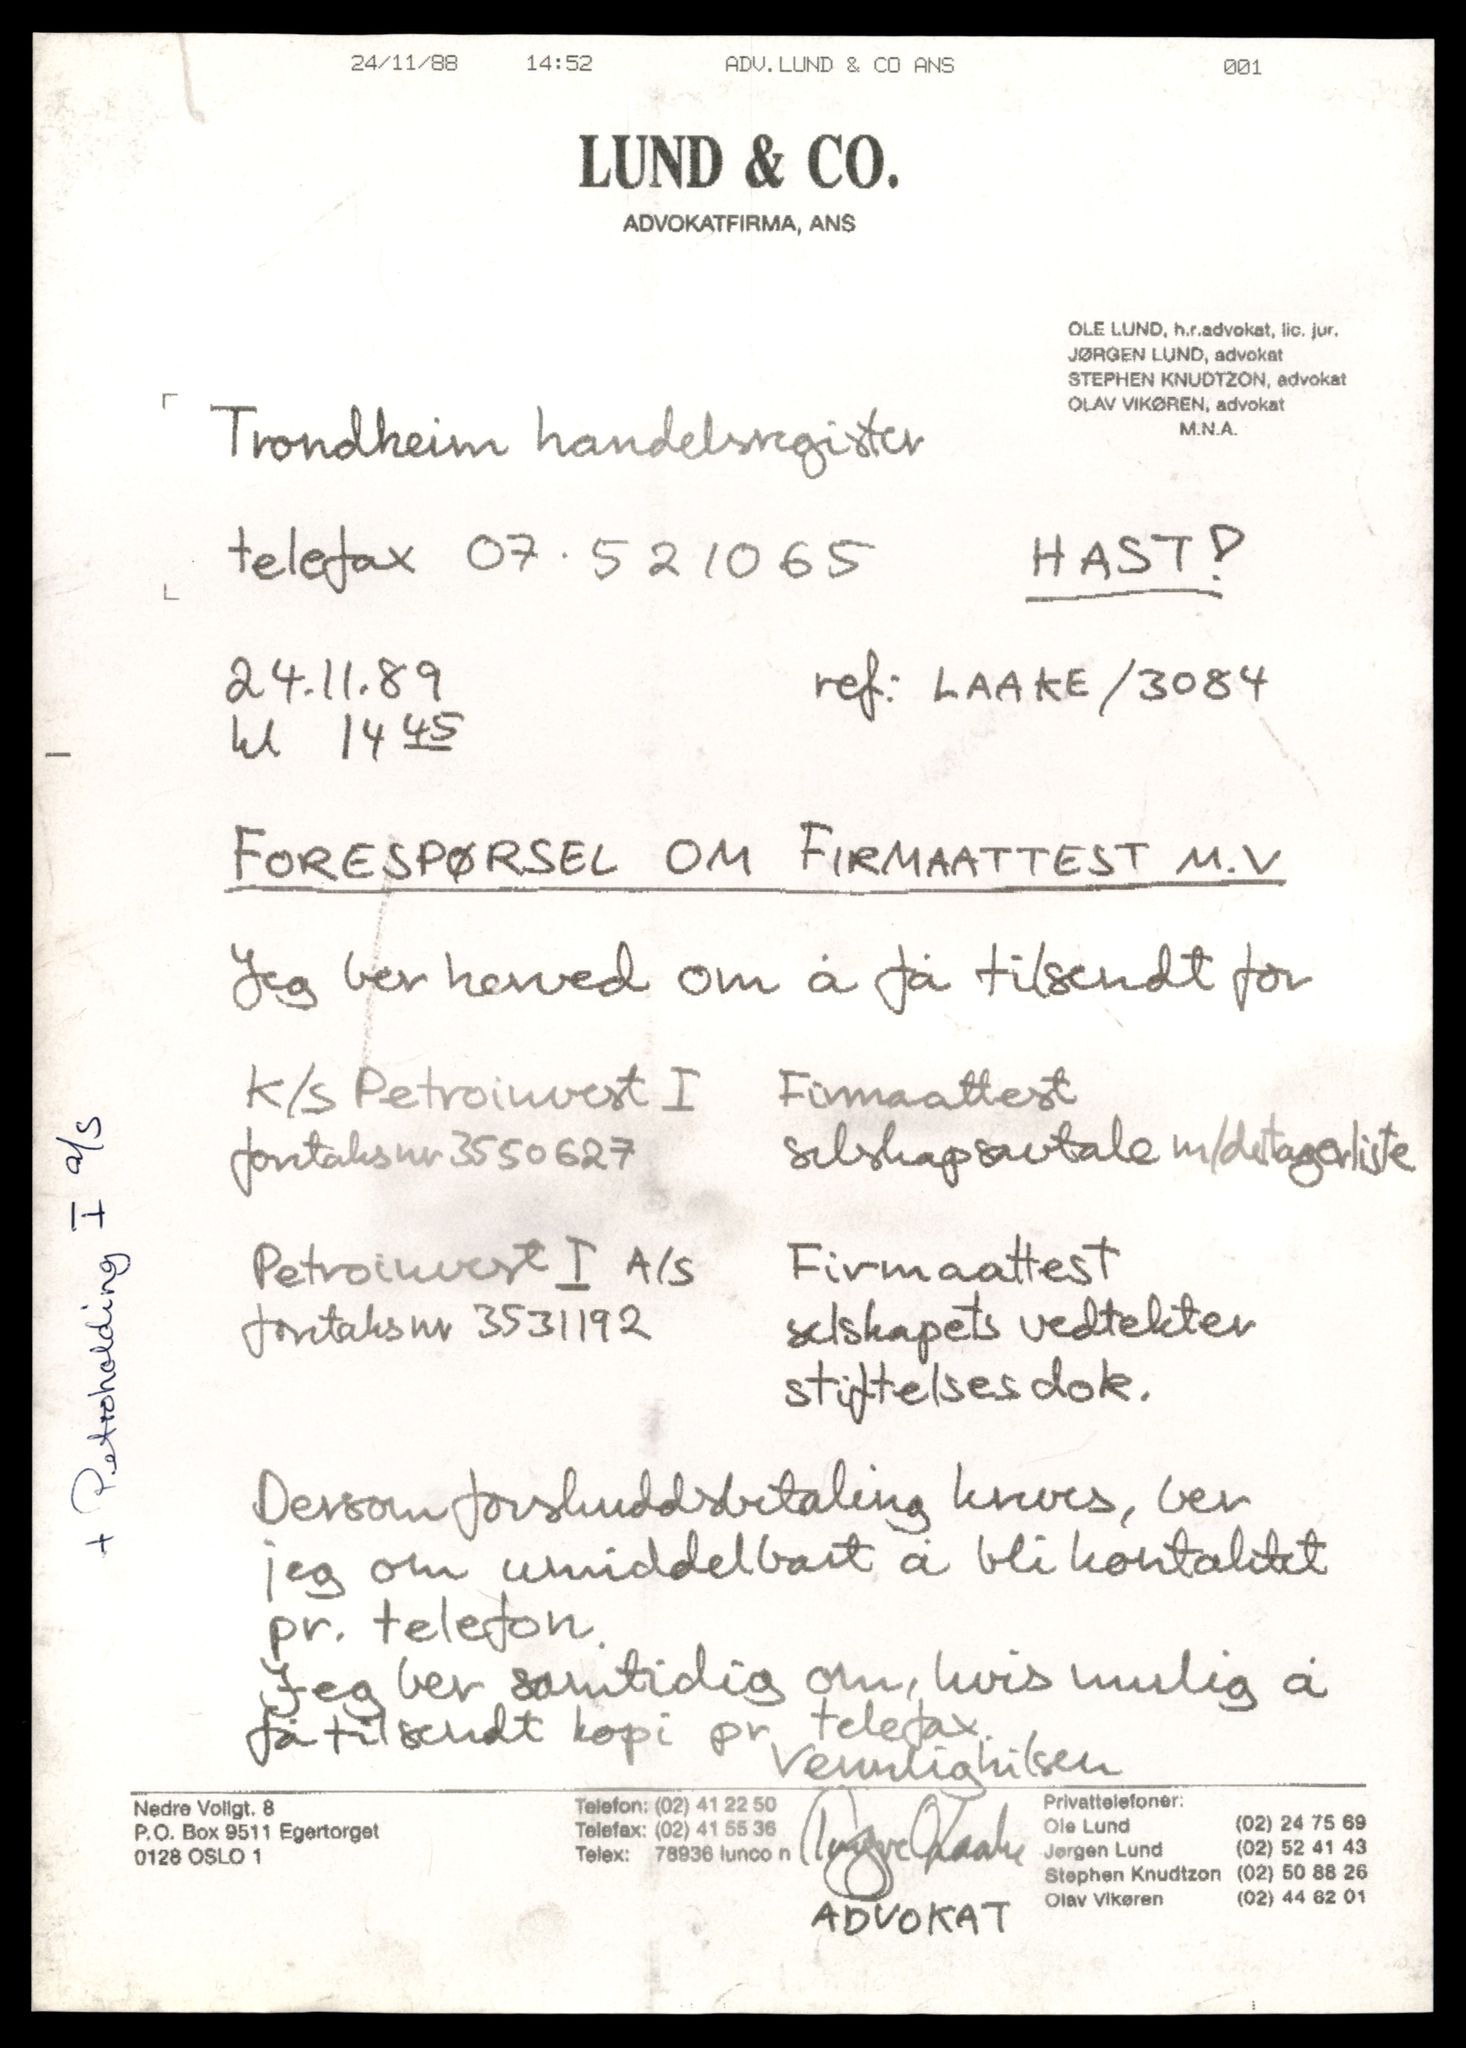 24/11/88 14:52 ADV.LUND & CO ANS 001
LUND & CO.
ADVOKATFIRMA, ANS
OLE LUND, h.r.advokat, lic. jur.
JØRGEN LUND, advokat
STEPHEN KNUDTZON, advokat
OLAV VIKØREN, advokat
M.N.A.
Trondheim handelsregister
telefax 07.521065 HAST!
24.11.89 ref: LAAKE/3084
kl 14 45
FORESPØRSEL OM FIRMAATTEST M.V
Jeg ber herved om å få tilsendt for
K/S Petroinvest I Firmaattest
foretaksnr 3550627 selskapsavtale m/deltagerliste
Petroinvest I A/S Firmaattest
foretaksnr 3531192 selskapets vedtekter
stiftelsesdok.
Dersom forskuddsbetaling kreves, ber
jeg om umiddelbart å bli kontaktet
pr. telefon.
Jeg ber samtidig om, hvis mulig å
få tilsendt kopi pr telefax.
Vennlig hilsen
Laake
ADVOKAT
+ Petroholding I a/s
Nedre Vollgt. 8
P.O. Box 9511 Egertorget
0128 OSLO 1
Telefon: (02) 41 22 50
Telefax: (02) 41 55 36
Telex: 78936 lunco n
Privattelefoner:
Ole Lund (02) 24 75 69
Jørgen Lund (02) 52 41 43
Stephen Knudtzon (02) 50 88 26
Olav Vikøren (02) 44 62 01